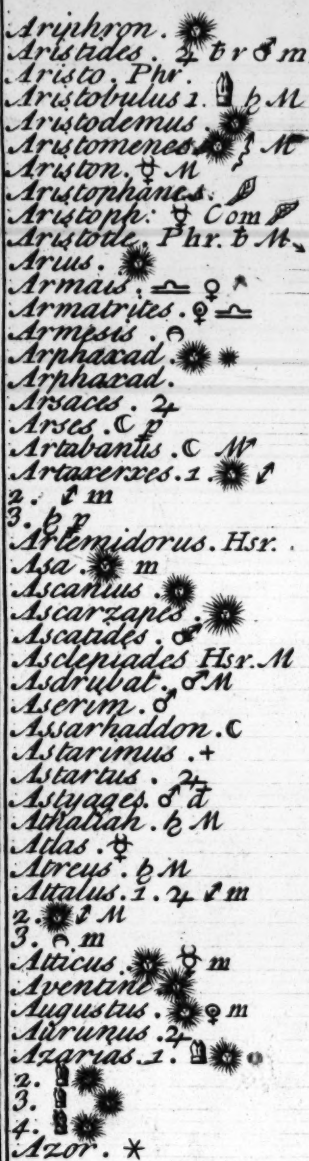 Ariphron. ☀
Aristides. ♃ ♄ r ♂ m
Aristo. Phr.
Aristobulus 1. ♄ M
Aristodemus. ☀
Aristomenes. ☀ ♐ M
Ariston. ☿ M
Aristophanes.
Aristoph: ☿ Com
Aristotle. Phr. ♄ M
Arius. ☀
Armais. ♎ ♀
Armatrites. ♀ ♎
Armesis.
Arphaxad. ☀ ☀
Arphaxad.
Arsaces. ♃
Arses. ☾ p
Artabantis. ☾ M
Artaxerxes. 1. ☀ ♂
2. ♂ m
3. ♄ p
Artemidorus. Hsr.
Asa. ☀ m
Ascanius. ☀
Ascarzapes. ☀
Ascatides. ♂
Asclepiades Hsr. M
Asdrubat. ♂ M
Aserim. ♂
Assarhaddon. ☾
Astarimus. +
Astartus. ♃
Astyages. ♂ d
Athaliah. ♄ M
Atlas. ☿
Atreus. ♄ M
Attalus. 1. ♃ ♂ m
2. ☀ ♂ M
3. m
Atticus. ☀ ☿ m
Aventine ☀
Augustus. ☀ ♀ m
Aurunus. ♃
Azarias. 1. ☀
2. ☀
3. ☀
4. ☀
Azor. ✶